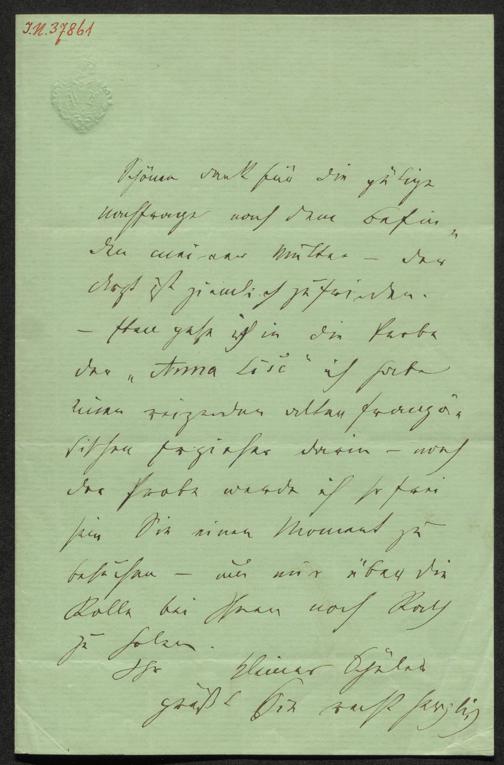 I.N. 37861
Schönen Dank für die gütige
Nachfrage nach dem Befin„
den meiner Mutter – der
Arzt ist ziemlich zufrieden.
– Eben gehe ich in die Probe
der „Anna Lisč" ich habe
einen reizenden alten franzö„
sischen Erzieher darin – nach
der Probe werde ich so frei
sein Sie einen Moment zu
besuchen – um mir über die
Rolle bei Ihnen noch Rath
zu holen.
Ihr kleiner Schüler
grüßt Sie recht herzlich